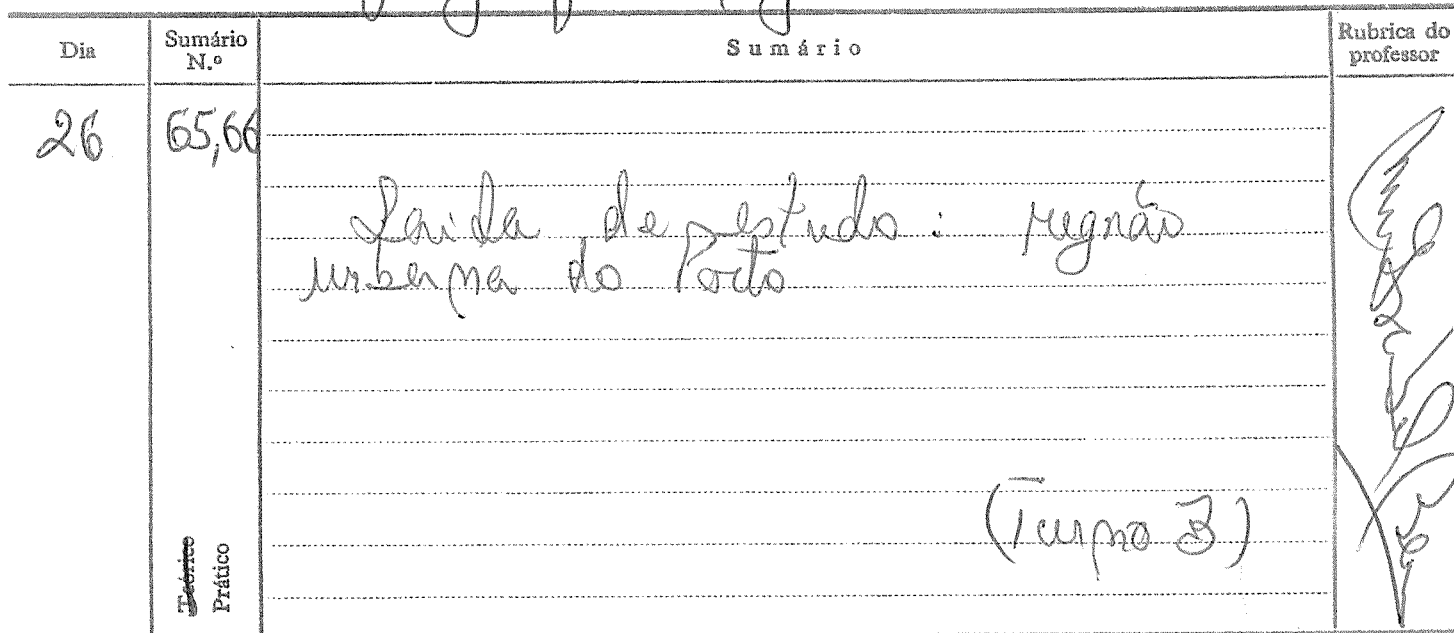 Dia
Sumário
N.º
Sumário
Rubrica do
professor
26
65,66
Saida de estudo: região
urbana do Porto
(Turno 3)
Teórico
Prático